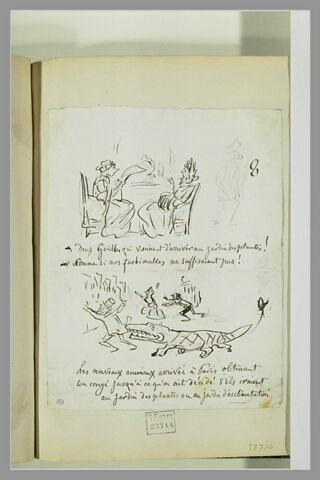 8
— Deux Goulles, qui viennent d'arriver au jardin des plantes!
— Comme si nos fashionables ne suffisaient pas!
Les nouveaux animaux arrivés à Paris obtinrent
un congé jusqu'à ce qu'on ait décidé s'ils iraient
au jardin des plantes ou au jardin d'acclimatation
23714